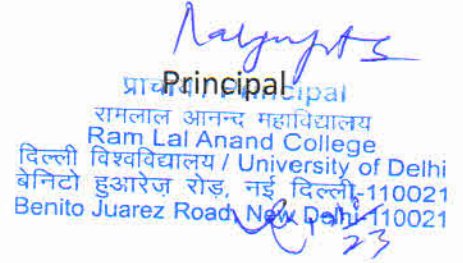 Principal
प्राचार्य / Principal
रामलाल आनन्द महाविद्यालय
Ram Lal Anand College
दिल्ली विश्वविद्यालय / University of Delhi
बेनिटो हुआरेज़ रोड़, नई दिल्ली-110021
Benito Juarez Road, New Delhi-110021